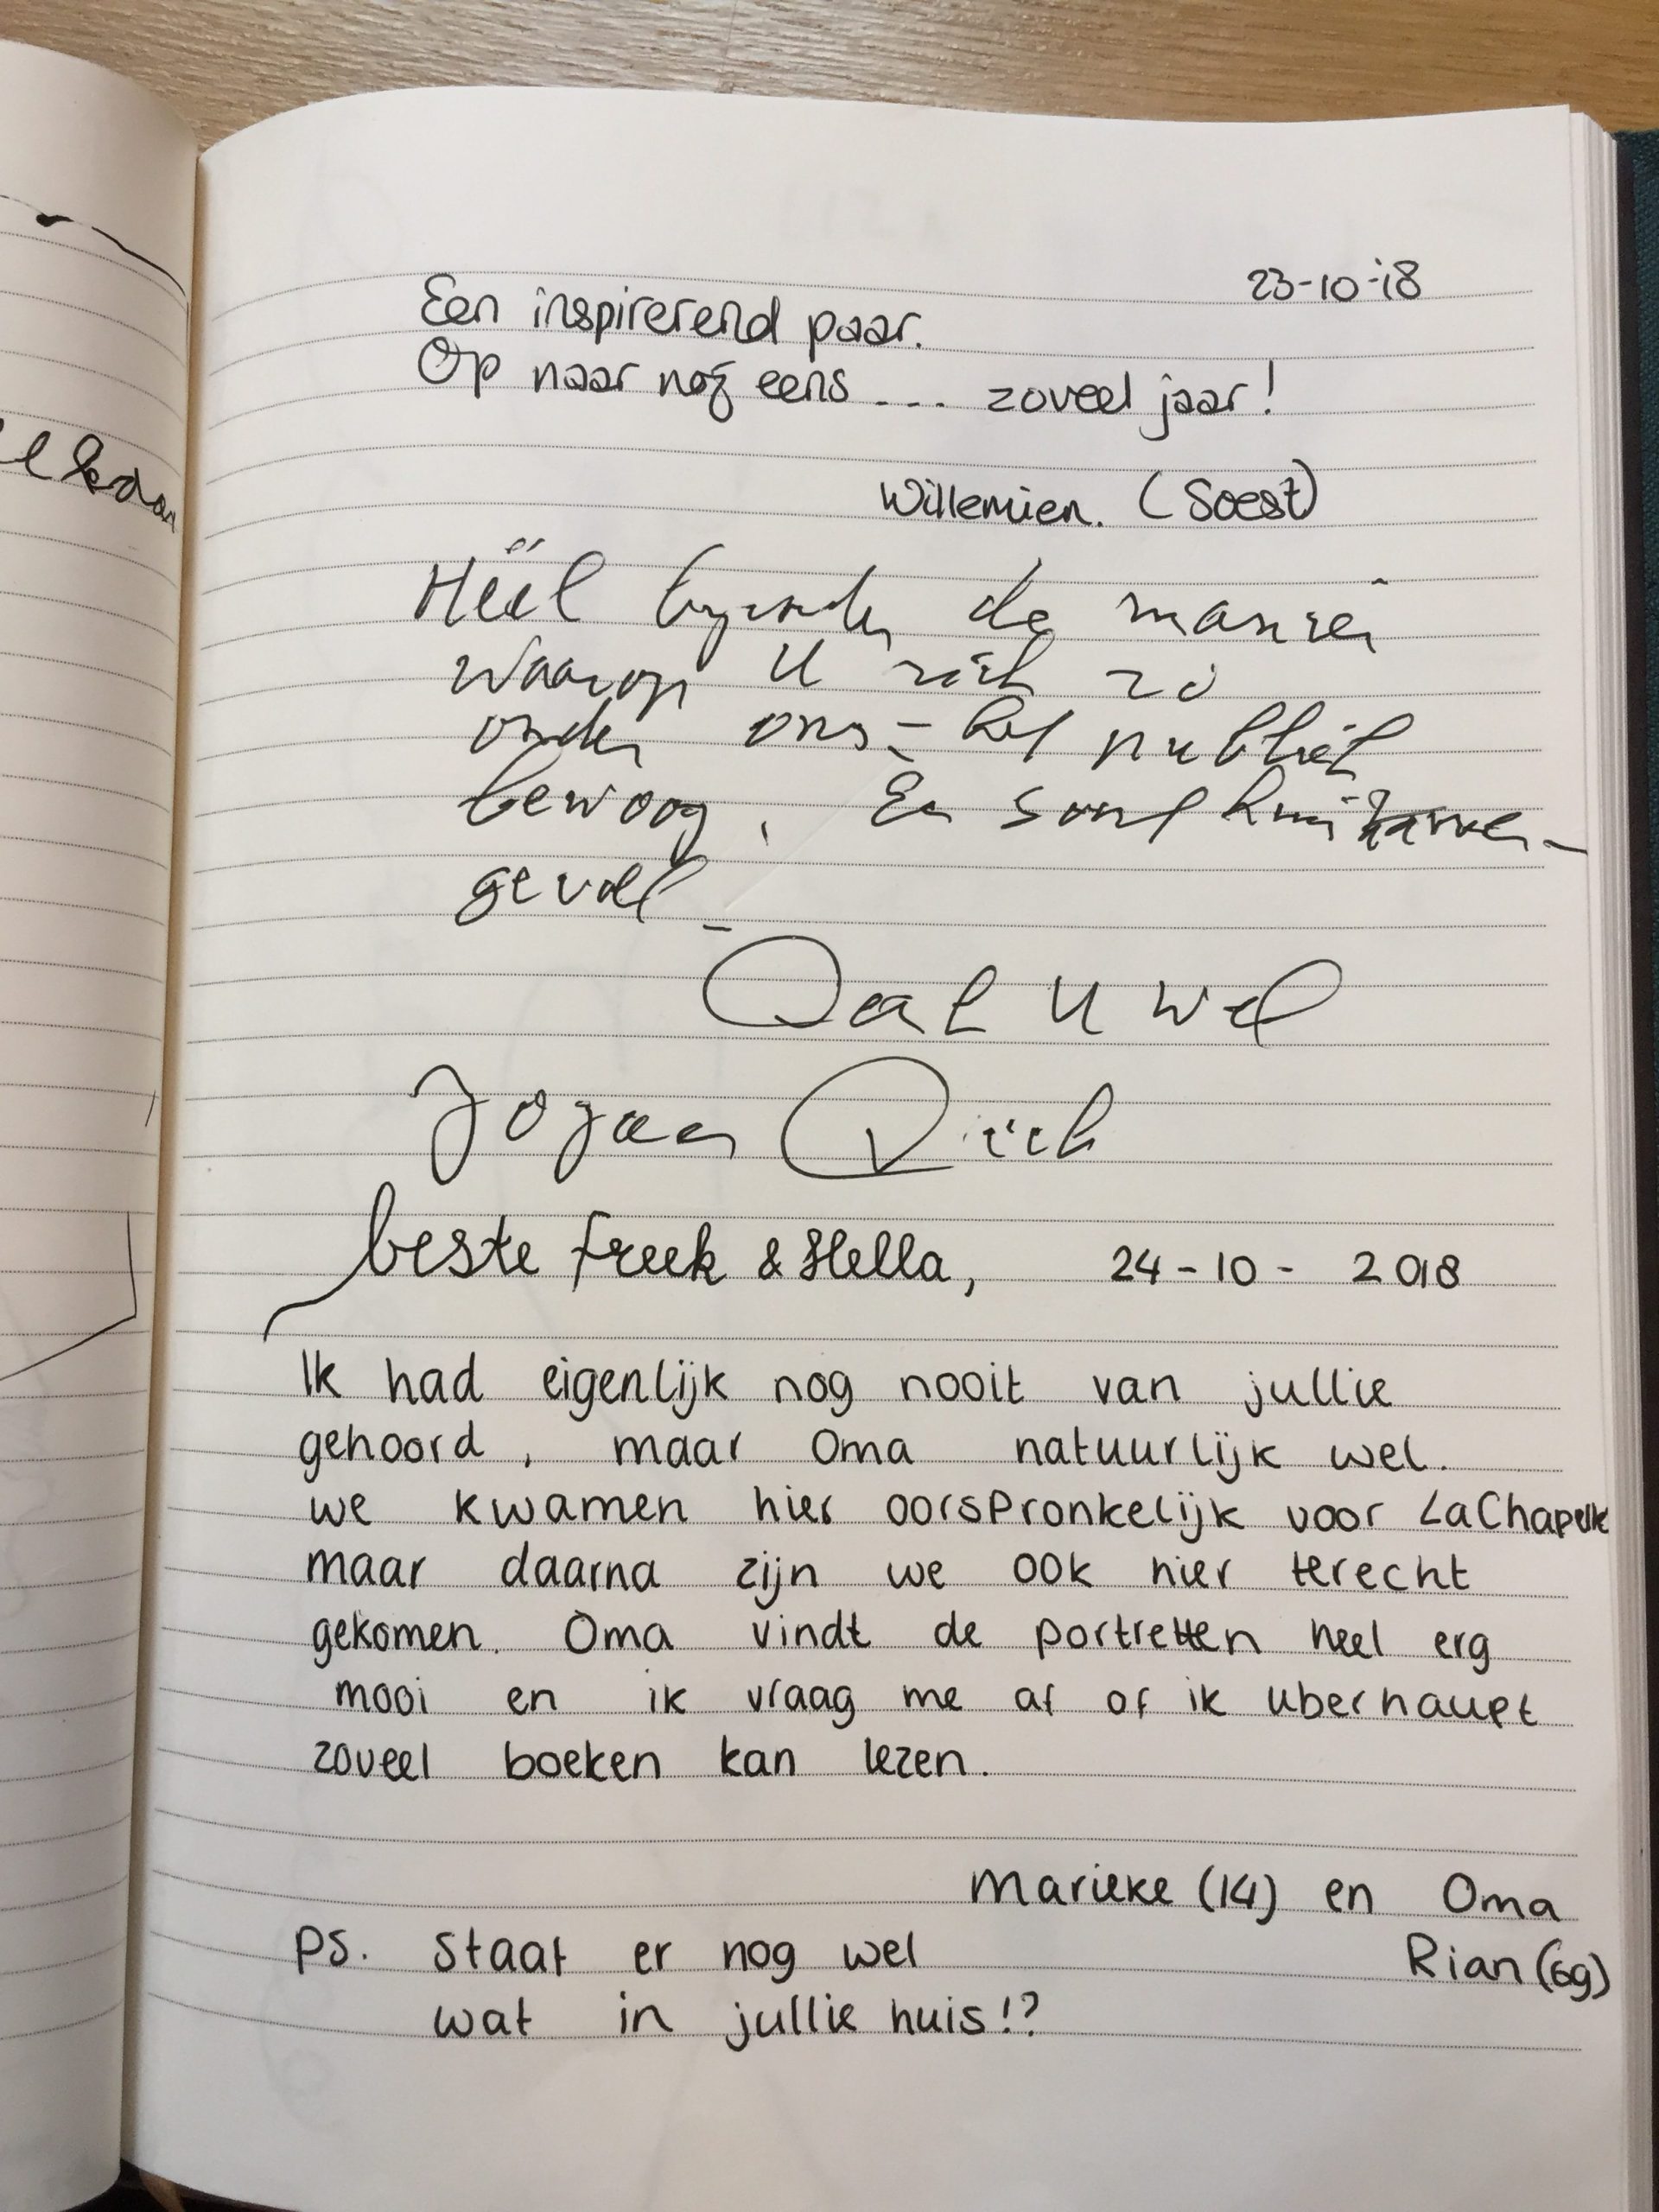 23-10-'18
Een inspirerend paar.
Op naar nog eens ... zoveel jaar!
Willemien. (Soest)
Héél bijzonder de manier
waarop U zich zo
onder ons - het publiek
bewoog. Een soort huiskamer-
gevoel
Dank U wel
beste Freek & Hella, 24-10-2018
Ik had eigenlijk nog nooit van jullie
gehoord, maar Oma natuurlijk wel.
we kwamen hier oorspronkelijk voor LaChapelle
maar daarna zijn we ook hier terecht
gekomen. Oma vindt de portretten heel erg
mooi en ik vraag me af of ik uberhaupt
zoveel boeken kan lezen.
Marieke (14) en Oma
Rian (69)
PS. Staat er nog wel
wat in jullie huis!?